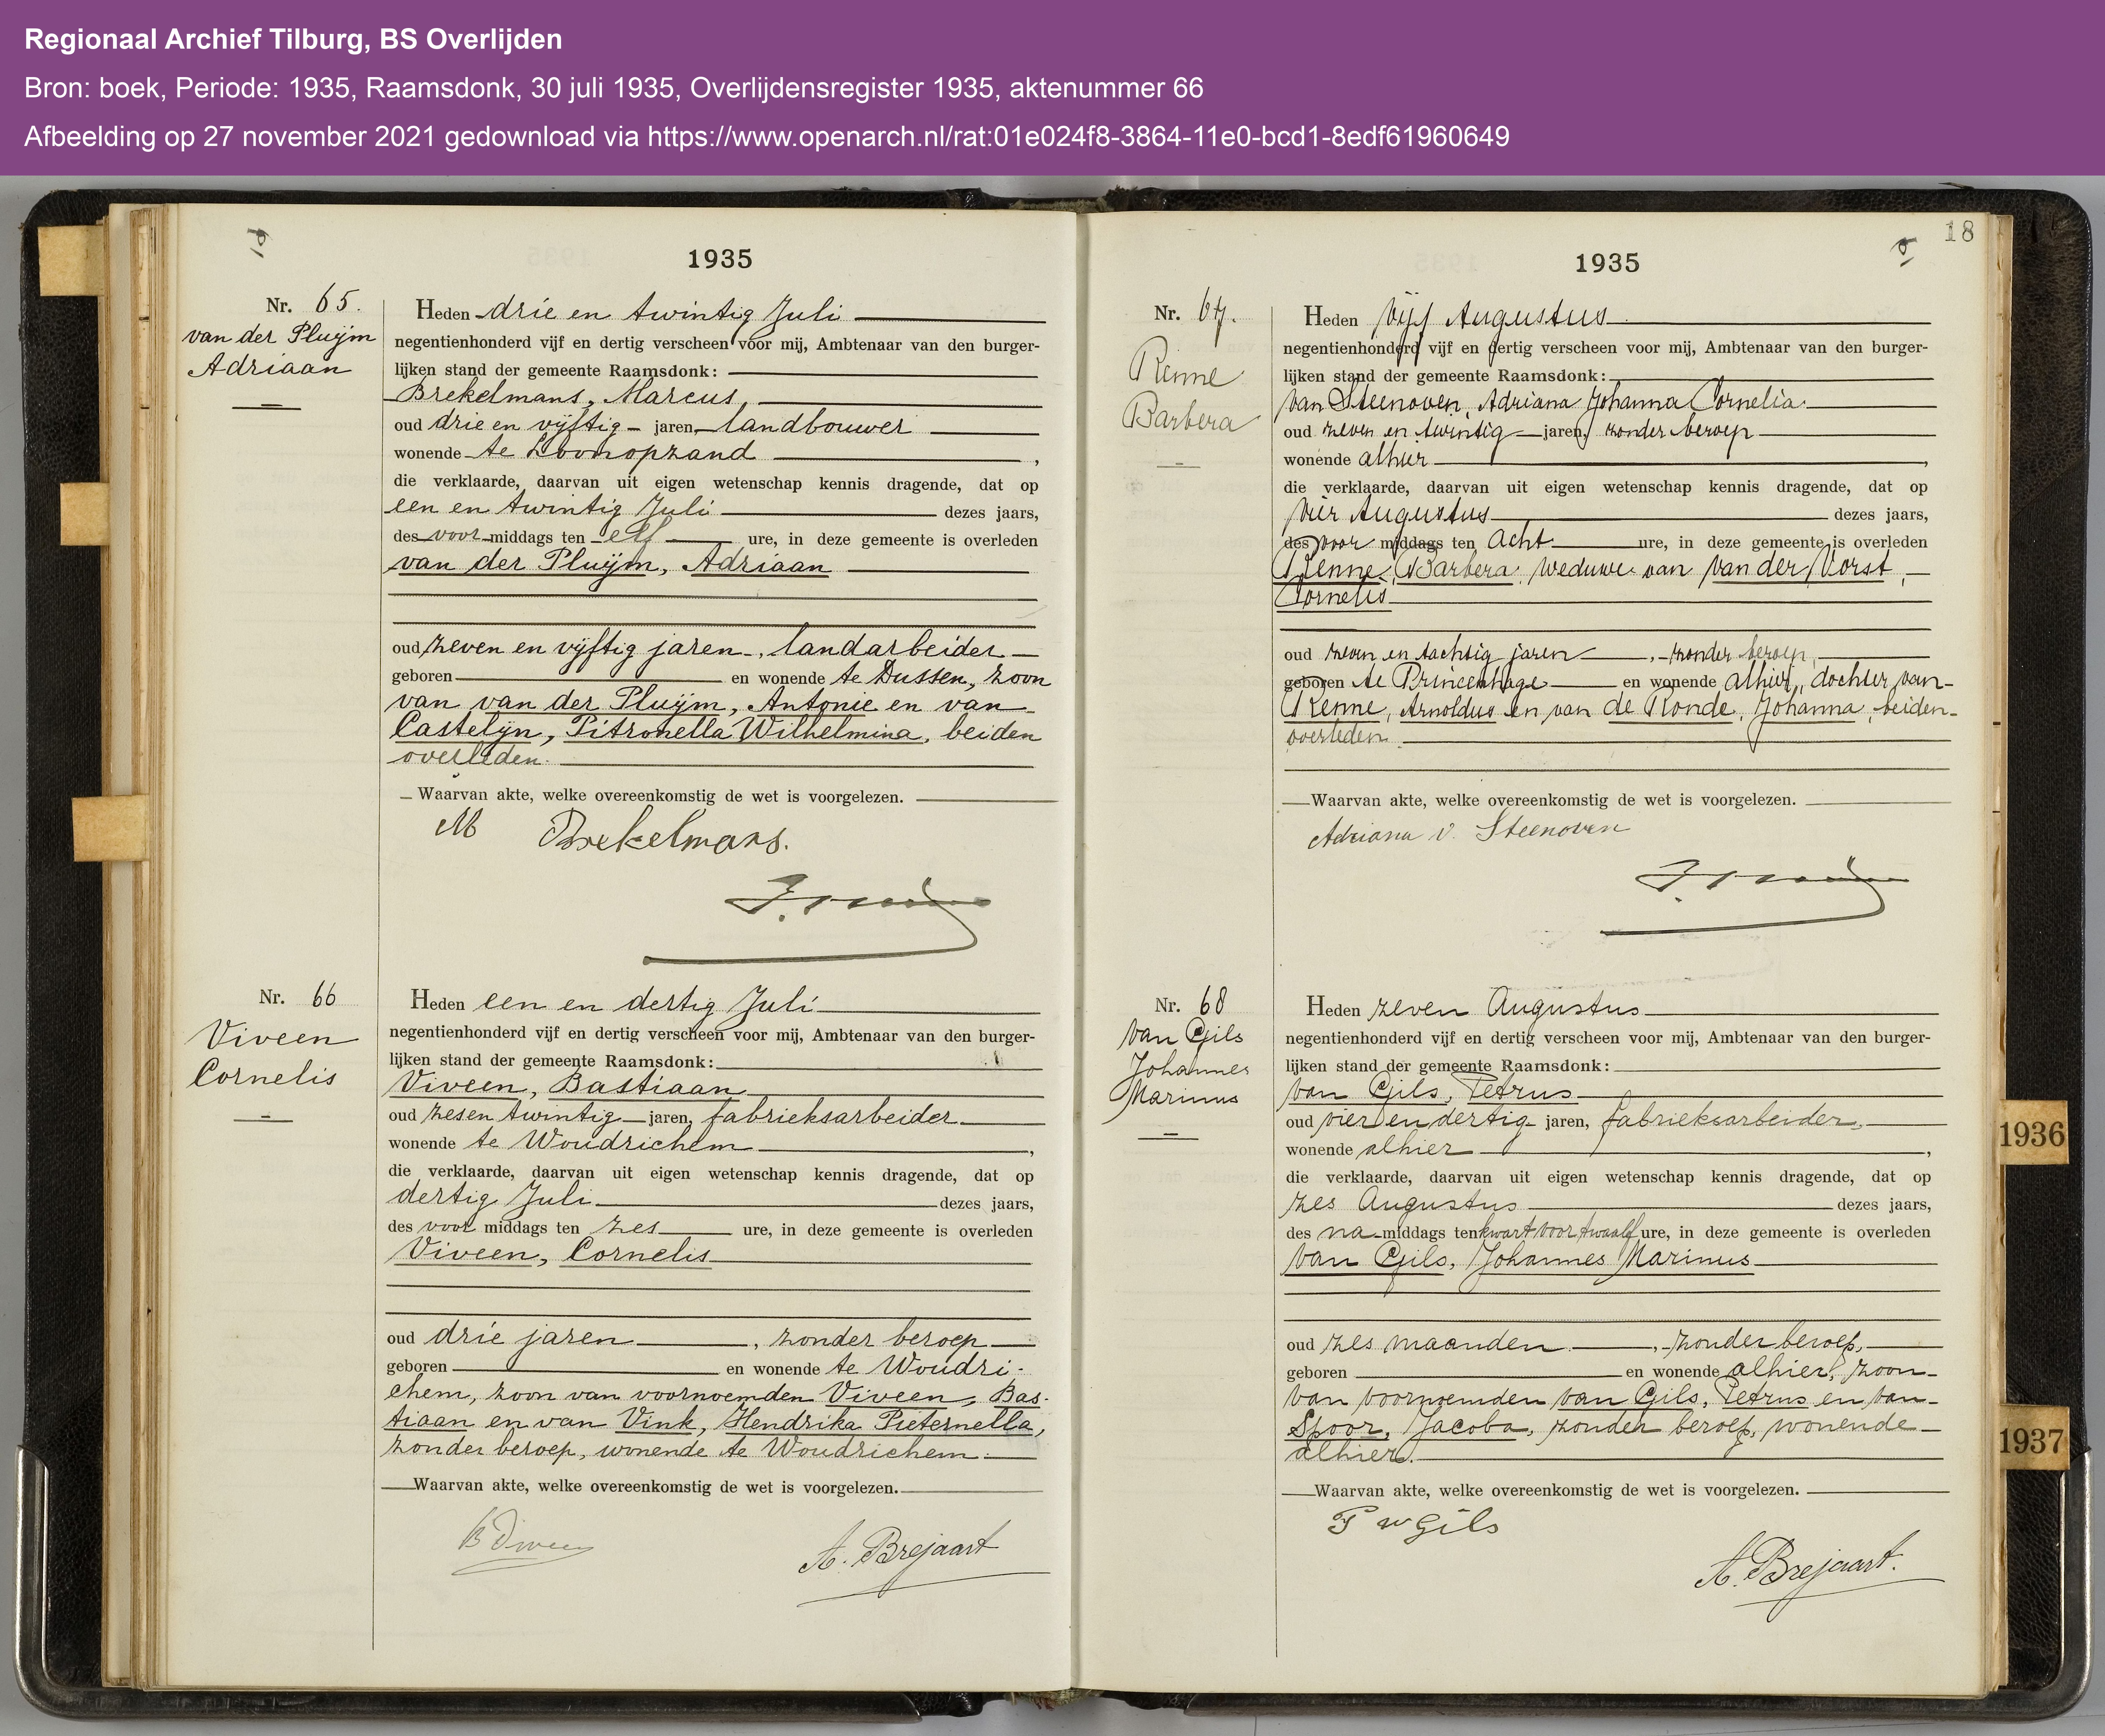 Regionaal Archief Tilburg, BS Overlijden
Bron: boek, Periode: 1935, Raamsdonk, 30 juli 1935, Overlijdensregister 1935, aktenummer 66
Afbeelding op 27 november 2021 gedownload via https://www.openarch.nl/rat:01e024f8-3864-11e0-bcd1-8edf61960649
1935
Nr. 65.
van der Pluijm
Adriaan
Heden drie en twintig Juli
negentienhonderd vijf en dertig verscheen voor mij, Ambtenaar van den burger-
lijken stand der gemeente Raamsdonk:
Brekelmans, Marcus,
oud drie en vijftig jaren, landbouwer
wonende te Loonopzand ,
die verklaarde, daarvan uit eigen wetenschap kennis dragende, dat op
een en twintig Juli dezes jaars,
des voor middags ten elf ure, in deze gemeente is overleden
van der Pluijm, Adriaan
oud zeven en vijftig jaren, landarbeider
geboren en wonende te Dussen, zoon
van van der Pluijm, Antonie en van
Castelijn, Pitronella Wilhelmina, beiden
overleden.
Waarvan akte, welke overeenkomstig de wet is voorgelezen.
M Brekelmans.
Nr. 66
Viveen
Cornelis
Heden een en dertig Juli
negentienhonderd vijf en dertig verscheen voor mij, Ambtenaar van den burger-
lijken stand der gemeente Raamsdonk:
Viveen, Bastiaan
oud zesen twintig jaren, fabrieksarbeider
wonende te Woudrichem ,
die verklaarde, daarvan uit eigen wetenschap kennis dragende, dat op
dertig Juli dezes jaars,
des voor middags ten zes ure, in deze gemeente is overleden
Viveen, Cornelis
oud drie jaren , zonder beroep
geboren en wonende te Woudri-
chem, zoon van voornoemden Viveen, Bas-
tiaan en van Vink, Hendrika Pieternella,
zonder beroep, wonende te Woudrichem.
Waarvan akte, welke overeenkomstig de wet is voorgelezen.
B Viveen
A. Brejaart
18
1935
Nr. 67.
Renne
Barbera
Heden vijf Augustus
negentienhonderd vijf en dertig verscheen voor mij, Ambtenaar van den burger-
lijken stand der gemeente Raamsdonk:
van Steenoven, Adriana Johanna Cornelia
oud zeven en twintig jaren, zonder beroep
wonende alhier ,
die verklaarde, daarvan uit eigen wetenschap kennis dragende, dat op
vier Augustus dezes jaars,
des voor middags ten acht ure, in deze gemeente is overleden
Renne, Barbera, weduwe van van der Vorst,
Cornelis
oud zeven en tachtig jaren , zonder beroep,
geboren te Princenhage en wonende alhier, dochter van
Renne, Arnoldus en van de Ronde, Johanna, beiden
overleden.
Waarvan akte, welke overeenkomstig de wet is voorgelezen.
Adriana v. Steenoven
Nr. 68
van Gils
Johannes
Marinus
Heden zeven Augustus
negentienhonderd vijf en dertig verscheen voor mij, Ambtenaar van den burger-
lijken stand der gemeente Raamsdonk:
van Gils, Petrus
oud vier en dertig jaren, fabrieksarbeider,
wonende alhier ,
die verklaarde, daarvan uit eigen wetenschap kennis dragende, dat op
zes Augustus dezes jaars,
des na middags ten kwart voor twaalf ure, in deze gemeente is overleden
van Gils, Johannes Marinus
oud zes maanden , zonder beroep,
geboren en wonende alhier, zoon
van voornoemden van Gils, Petrus en van
Spoor, Jacoba, zonder beroep, wonende
alhier.
Waarvan akte, welke overeenkomstig de wet is voorgelezen.
P v Gils
A. Brejaart.
1936
1937